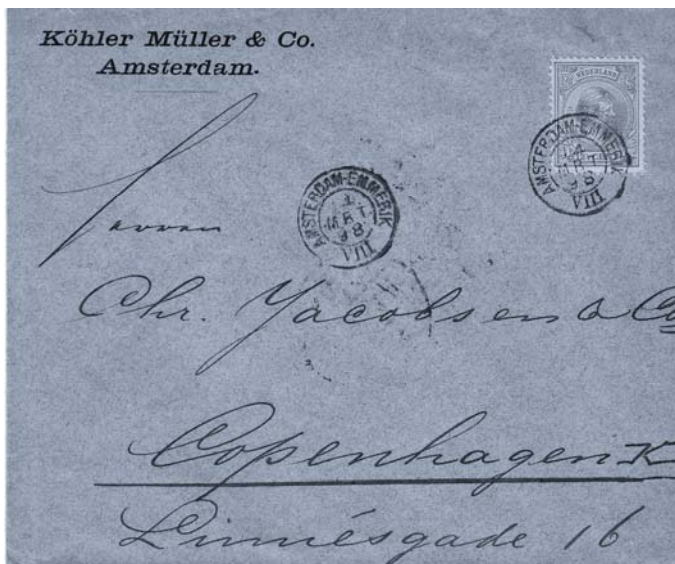 Köhler Müller & Co.
Amsterdam.
NEDERLAND
AMSTERDAM-EMMERIK
MRT
98
VIII
AMSTERDAM-EMMERIK
MRT
98
VIII
Herren
Chr. Jacobsen & Co
Copenhagen K
Linnésgade 16